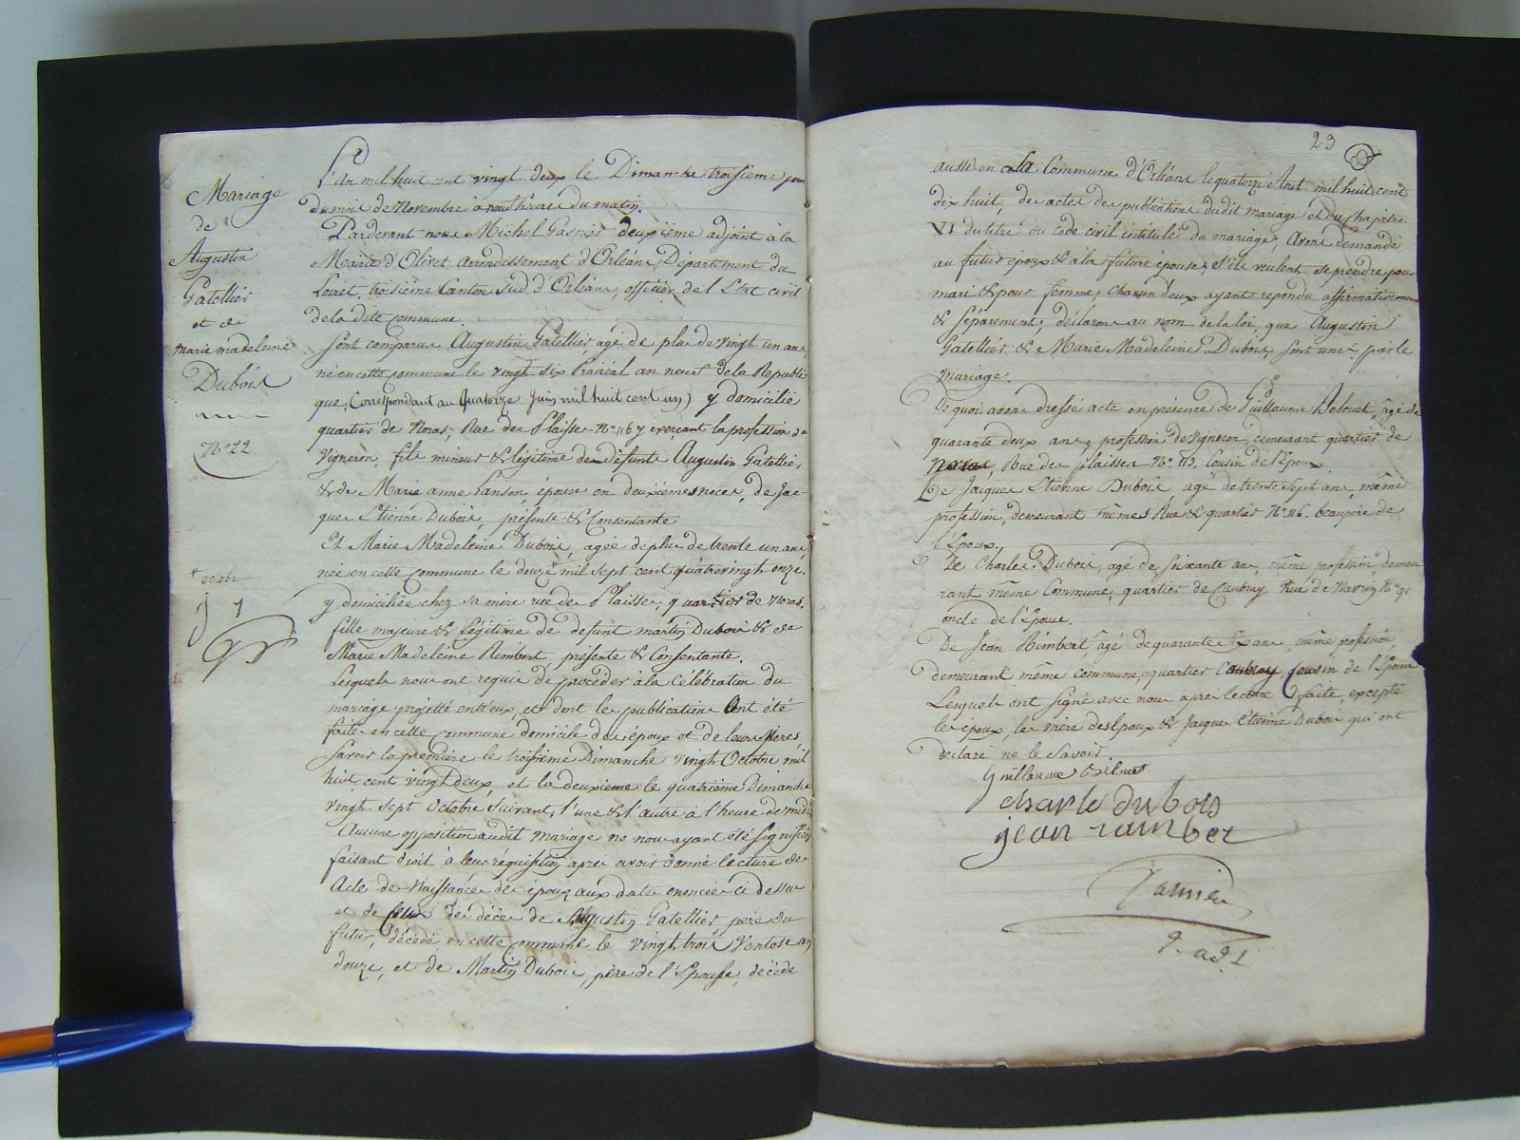 Mariage
de
Augustin
Gatellier
et de
marie madeleine
Dubois
N° 22
L'An mil huit cent vingt deux le Dimanche troisieme jour
du mois de Novembre à neuf heures du matin.
Pardevant nous Michel deuxième adjoint à la
Mairie d'Olivet arrondissement d'Orléans, Département du
Loiret, troisième Canton Sud d'Orléans, officier de l'Etat civil
de la dite commune.
Sont comparus Augustin Gatellier, agé de plus de vingt un ans,
né en cette commune le vingt six Prairial an neuf de la Republi
que, (Correspondant au Quatorze juin mil huit cent un) y domicilié
quartier de Noras, Rue des Plaisses N° 116 y exerçant la profession de
Vigneron, fils mineur & légitime de defunt Augustin Gatellier
& de Marie anne Lanson, épouse en deuxièmes noces, de Jac-
ques Etienne Dubois, présente & Consentante
Et Marie Madeleine Dubois, agée de plus de trente un ans,
née en cette commune le douze mil sept cent quatrevingt onze.
y domiciliée chez sa mère rue des Plaisses, quartier de Noras.
fille majeure & légitime de defunt martin Dubois & de
Marie Madeleine Rembert présente & Consentante.
Lesquels nous ont requis de proceder à la Célébration du
mariage projetté entr'eux, et dont les publications ont été
faites en cette commune domicile des époux et de leurs mères
Savoir la première le troisieme Dimanche vingt Octobre mil
huit cent vingt deux, et la deuxieme le quatrieme Dimanche
vingt sept Octobre suivant, l'une & l'autre à l'heure de midi
Aucune opposition audit mariage ne nous ayant été signifiée
faisant droit à leur réquisition, apres avoir donné lecture des
Actes de Naissance des époux aux dates enoncées ci dessus
et de ceux des décès de Augustin Gatellier père du
futur, décédé en cette commune le vingt trois Ventose an
douze, et de Martin Dubois, père de l'Epouse, décédé
23
aussi en cette Commune d'Orléans le quatorze Aout mil huit cent
dix huit, des actes de publications dudit mariage et Du Chapitre
VI du titre du code civil intitulé du mariage, Avons demandé
au futur époux & à la future épouse, s'ils veulent se prendre pour
mari & pour femme, chacun d'eux ayant repondu affirmativement
& séparement, déclarons au nom de la loi, que Augustin
Gatellier & Marie Madeleine Dubois, sont unis par le
mariage.
De quoi avons dressé acte en présence de Guillaume Delouet, âgé de
quarante deux ans, profession de vigneron, demeurant quartier de
Noras, Rue des plaisses N° 113. Cousin de l'époux
De Jacques Etienne Dubois agé de trente sept ans, même
profession, demeurant mêmes Rue & quartier N° 116. beaupère de
l'Epoux,
De Charles Dubois, agé de soixante ans, même profession demeu
rant même Commune, quartier de Caubray Rue de
oncle de l'Epouse.
De Jean Rimbert, âgé de quarante ans, même profession,
demeurant même commune, quartier Caubray Cousin de l'Epouse
Lesquels ont signé avec nous apres lecture faite, excepté
les époux, les mères des Epoux & Jacques Etienne Dubois qui ont
déclaré ne le Savoir.
Guillaume
charle dubois
jean rimber